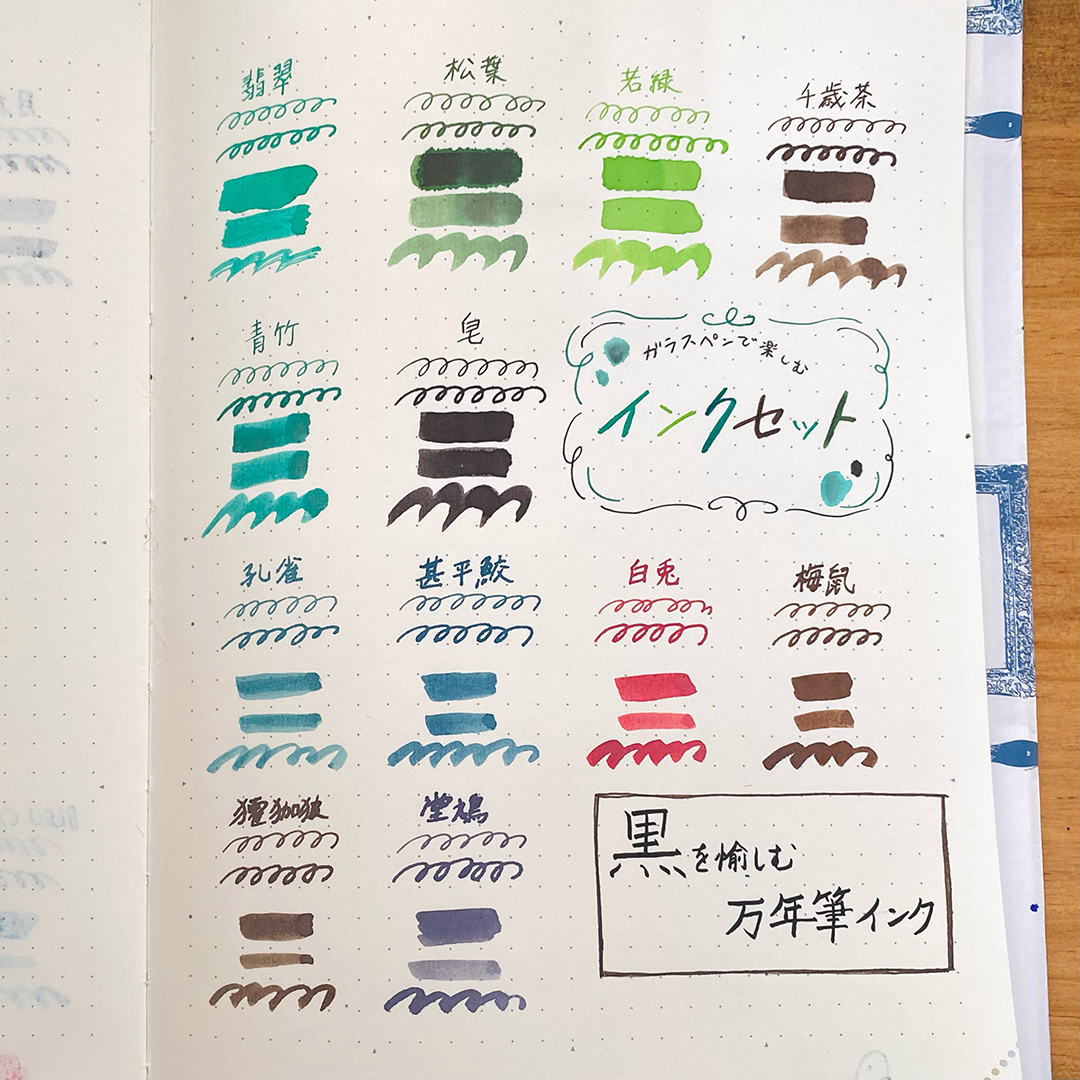 翡翠
松葉
若緑
千歳茶
青竹
皂
ガラスペンで楽しむ
インクセット
孔雀
甚平鮫
白兎
梅鼠
堂鳩
黒を愉しむ
万年筆インク